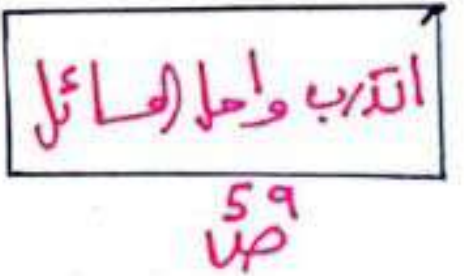 اتدرب وأحل المسائل
59
ص